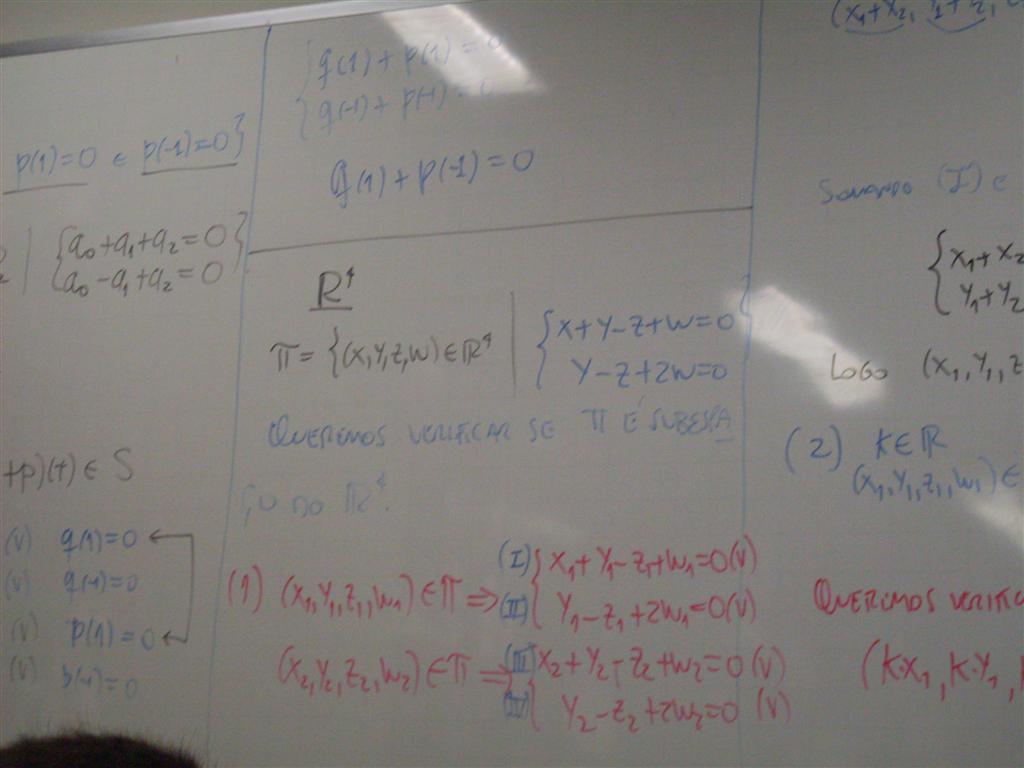 p(1)=0 e p(-1)=0}
| {a₀+a₁+a₂=0}
{a₀-a₁+a₂=0
+p)(t) ∈ S
(V) q(1)=0
(V) q(-1)=0
(V) p(1)=0
(V) p(-1)=0
{q(1)+p(1)=0
{q(-1)+p(-1)=0
q(1)+p(-1)=0
R⁴
π = {(x,y,z,w) ∈ R⁴ | {x+y-z+w=0}
y-z+2w=0
QUEREMOS VERIFICAR SE π É SUBESPA
ÇO DO R⁴.
(1) (x₁,y₁,z₁,w₁) ∈ π ⇒ (I) { x₁+y₁-z₁+w₁=0 (V)
(II) { y₁-z₁+2w₁=0 (V)
(x₂,y₂,z₂,w₂) ∈ π ⇒ (III) { x₂+y₂-z₂+w₂=0 (V)
(IV) { y₂-z₂+2w₂=0 (V)
(x₁+x₂,
SOMANDO (I) E
{x₁+x₂
{y₁+y₂
LOGO (x₁,y₁,z
(2) K ∈ R
(x₁,y₁,z₁,w₁) ∈
QUEREMOS VERIFIC
(K·x₁, K·y₁,